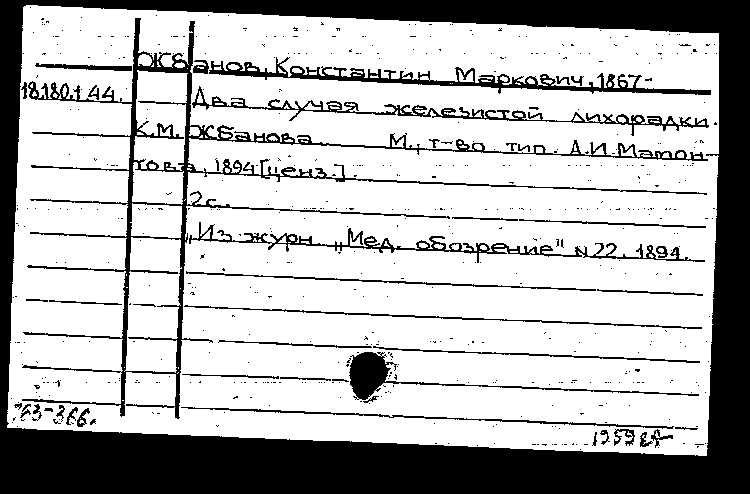 Жбанов, Константин Маркович, 1867-
18.180.1.44. Два случая железистой лихорадки.
К.М. Жбанова. М., т-во тип. А.И. Мамон-
това, 1894 [ценз.].
2 с.
„Из журн. „Мед. обозрение" N 22. 1894.
63-366.